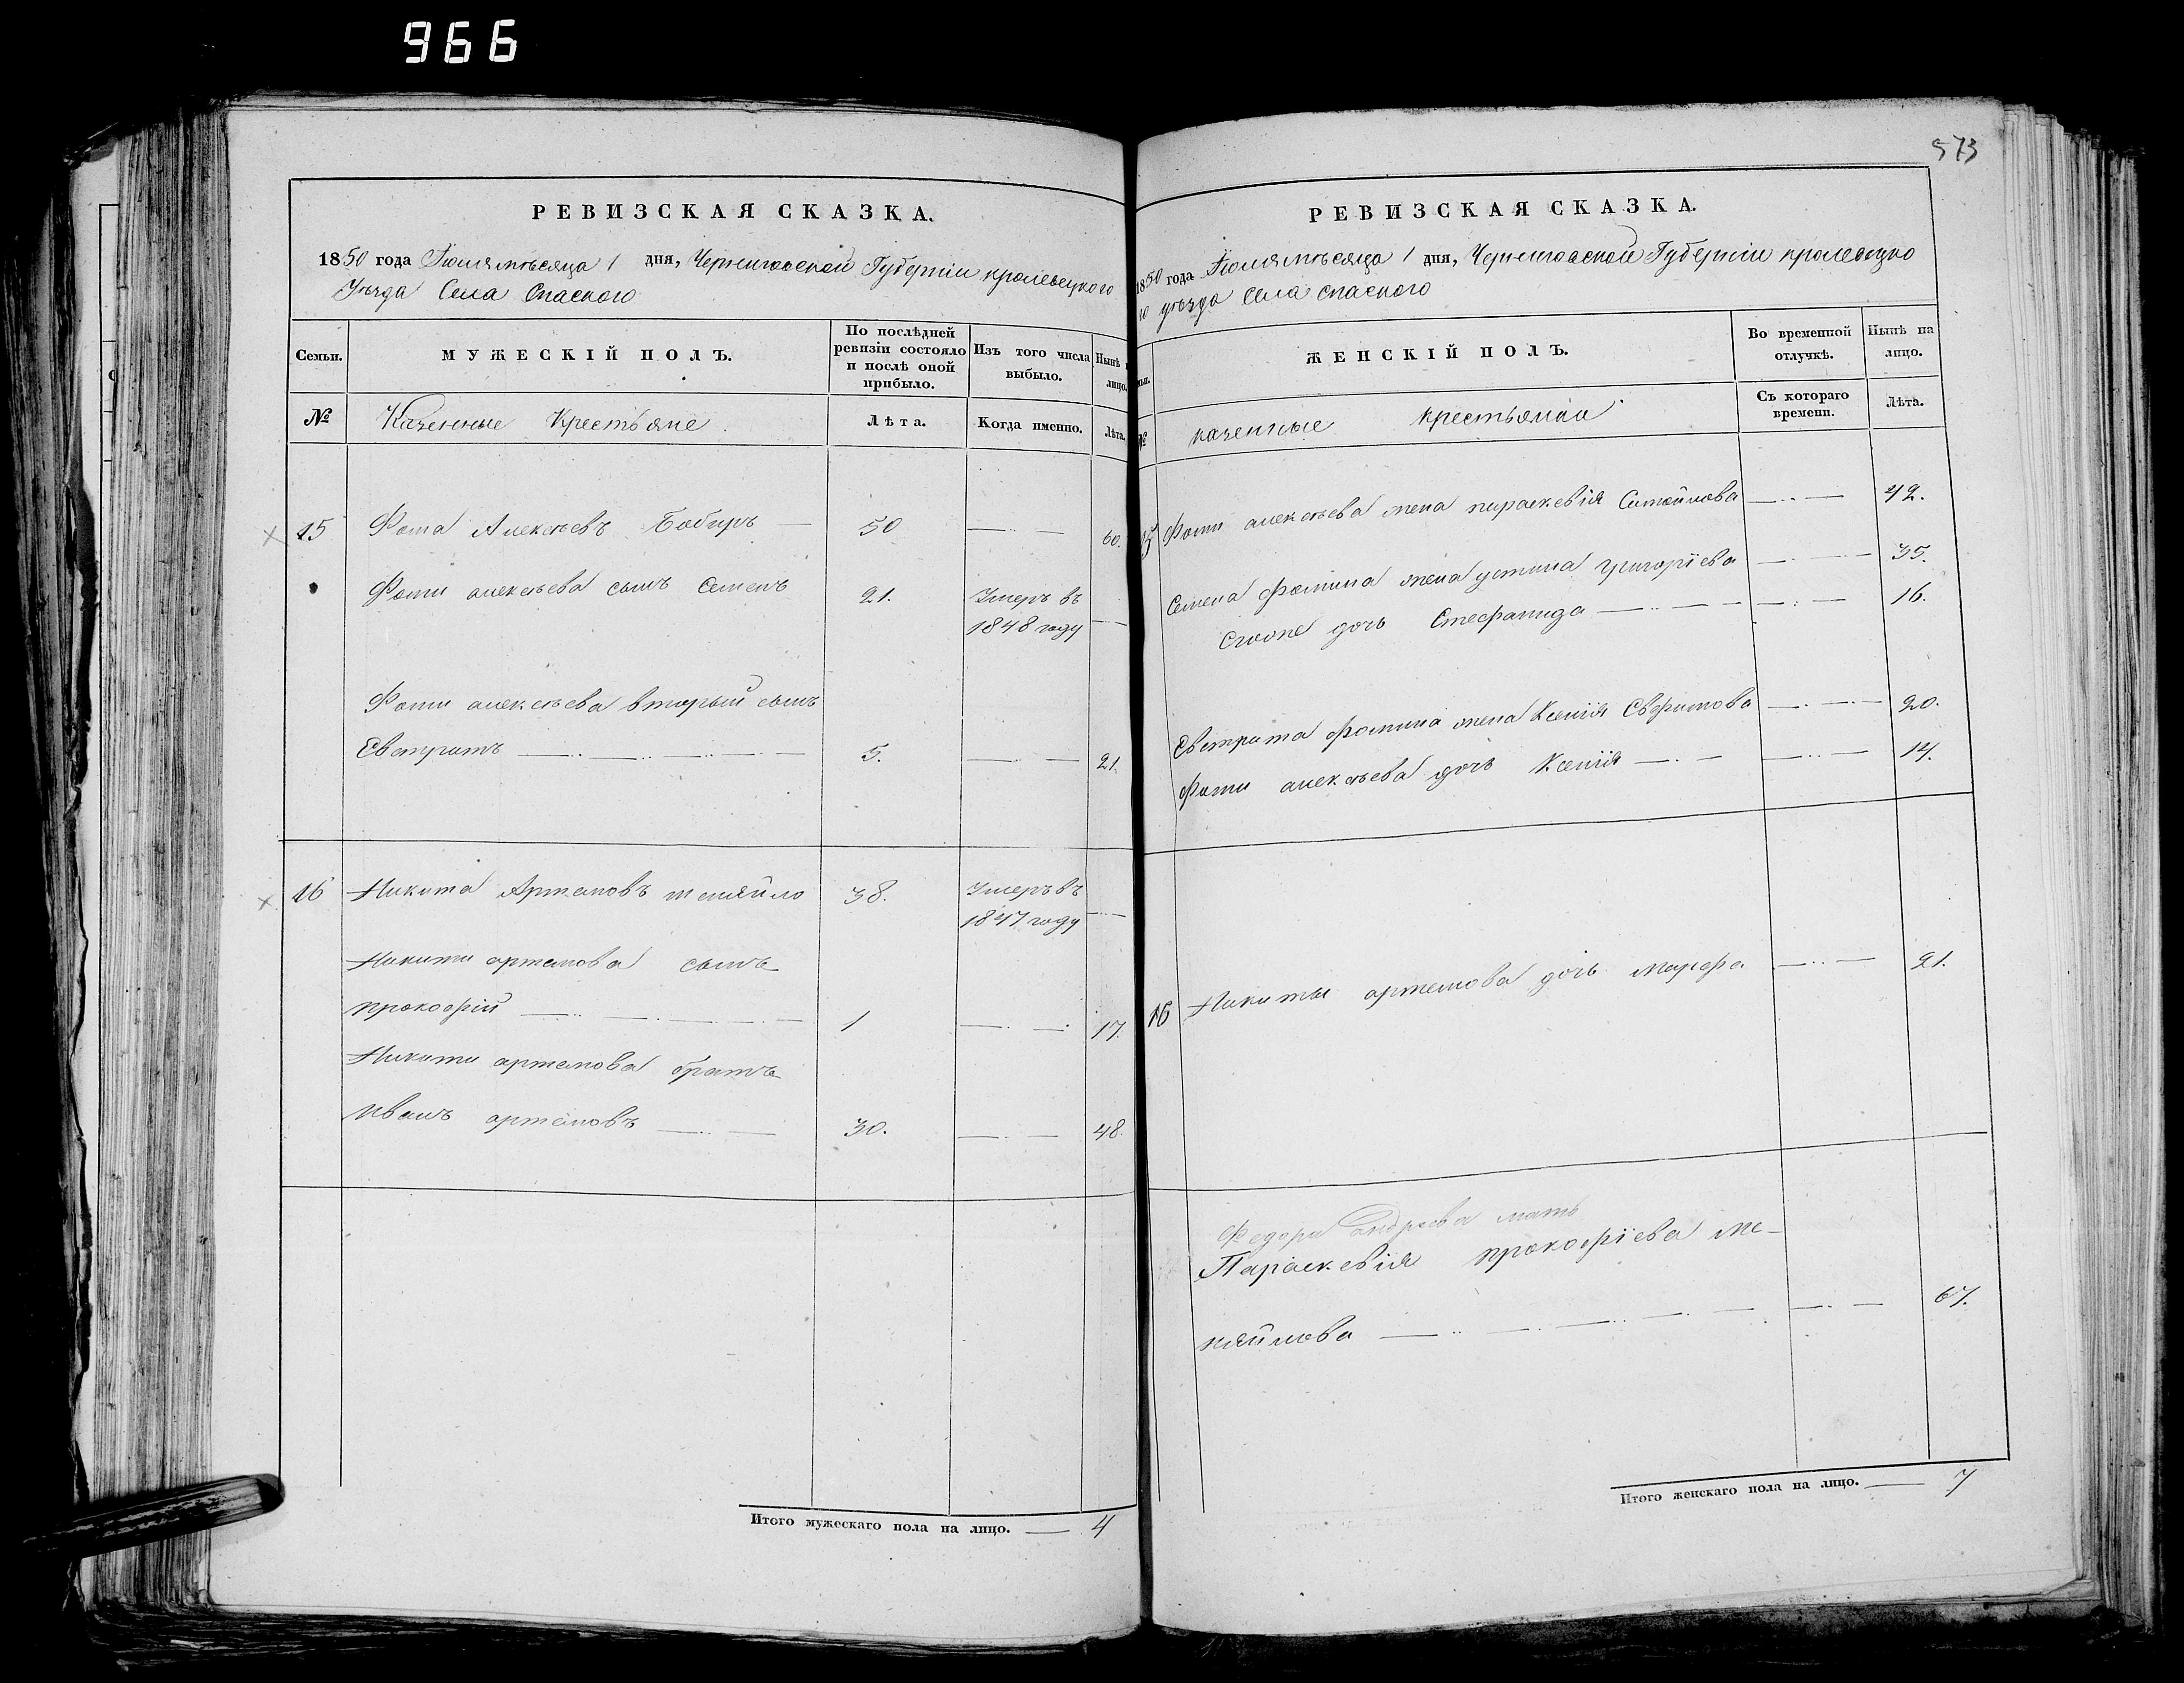 966
573
РЕВИЗСКАЯ СКАЗКА.
1850 года Іюля мѣсяца 1 дня, Черниговской Губерніи кролевецкого
Уѣзда Села Спаского
Семьи.
МУЖЕСКІЙ ПОЛЪ.
По послѣдней ревизіи состояло и послѣ оной прибыло.
Изъ того числа выбыло.
Нынѣ
лицо.
№
Казенные Крестьяне
Лѣта.
Когда именно.
Лѣта.
15 Фома Алексѣевъ Бобирь — 50 — 60.
Фоми алексѣева сынъ Семенъ 21. Умеръ въ
1848 году —
Фоми алексѣева вторый сынъ
Евстратъ — 5. — 21.
16 Никита Артемовъ 38. Умеръ въ
1847 году —
Никити артемова сынъ
прокофій — 1 — 17.
Никити артемова братъ
Иванъ артемовъ — 30. — 48.
Итого мужескаго пола на лицо. — 4
РЕВИЗСКАЯ СКАЗКА.
1850 года Іюля мѣсяца 1 дня, Черниговской Губерніи кролевецко
го уѣзда Села Спаского
ьи.
ЖЕНСКІЙ ПОЛЪ.
Во временной отлучкѣ.
Нынѣ на лицо.
№
казенные крестьянки
Съ котораго времени.
Лѣта.
15 Фоми алексѣева жена параскевія — 42.
Семена фомина жена устина григоріева — 35.
дочь Стефанида — 16.
Евстрата фомина жена Ксенія — 20.
Фоми алексѣева дочь Ксенія — 14.
16 Никиты артемова дочь марфа — 21.
Федора андреева мать
Параскевія прокофіева ме-
няйлова — 67.
Итого женскаго пола на лицо. — 7